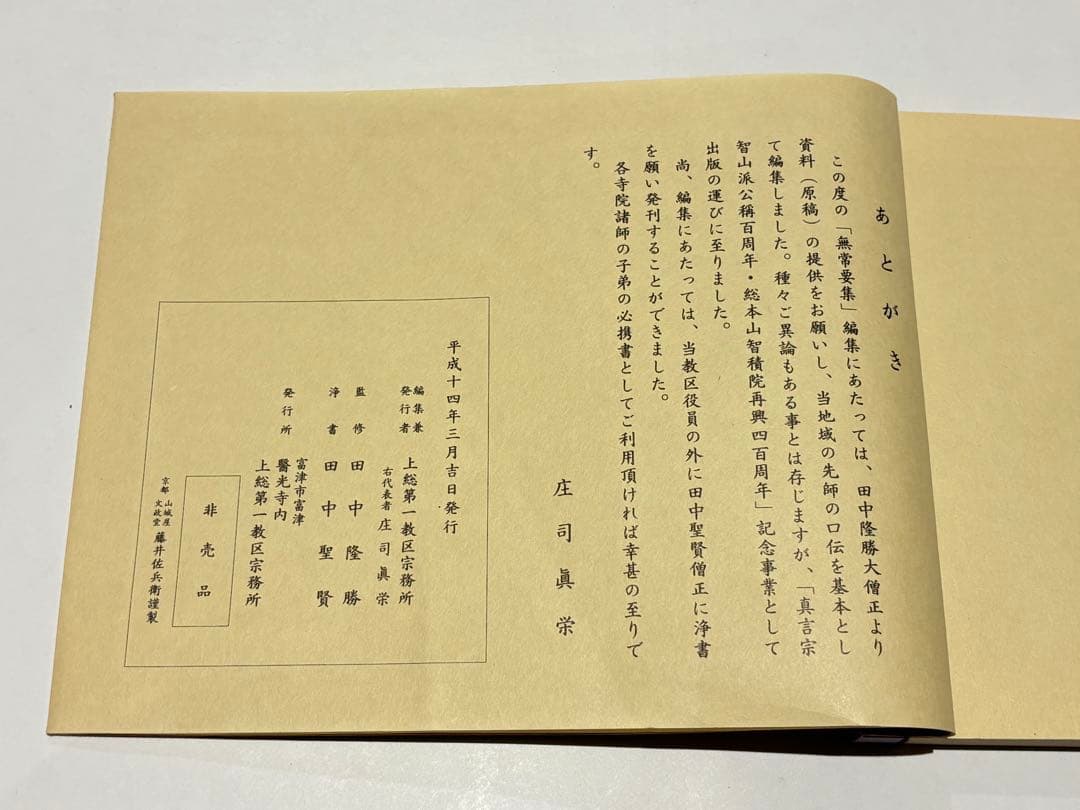 あとがき
この度の「無常要集」編集にあたっては、田中隆勝大僧正より
資料（原稿）の提供をお願いし、当地域の先師の口伝を基本とし
て編集しました。種々ご異論もある事とは存じますが、「真言宗
智山派公稱百周年・総本山智積院再興四百周年」記念事業として
出版の運びに至りました。
尚、編集にあたっては、当教区役員の外に田中聖賢僧正に浄書
を願い発刊することができました。
各寺院諸師の子弟の必携書としてご利用頂ければ幸甚の至りで
す。
庄司眞栄
平成十四年三月吉日発行
編集兼
発行者
上総第一教区宗務所
右代表者 庄司眞栄
監修 田中隆勝
浄書 田中聖賢
発行所
富津市富津
醫光寺内
上総第一教区宗務所
非売品
京都 山城屋
文政堂
藤井佐兵衛謹製